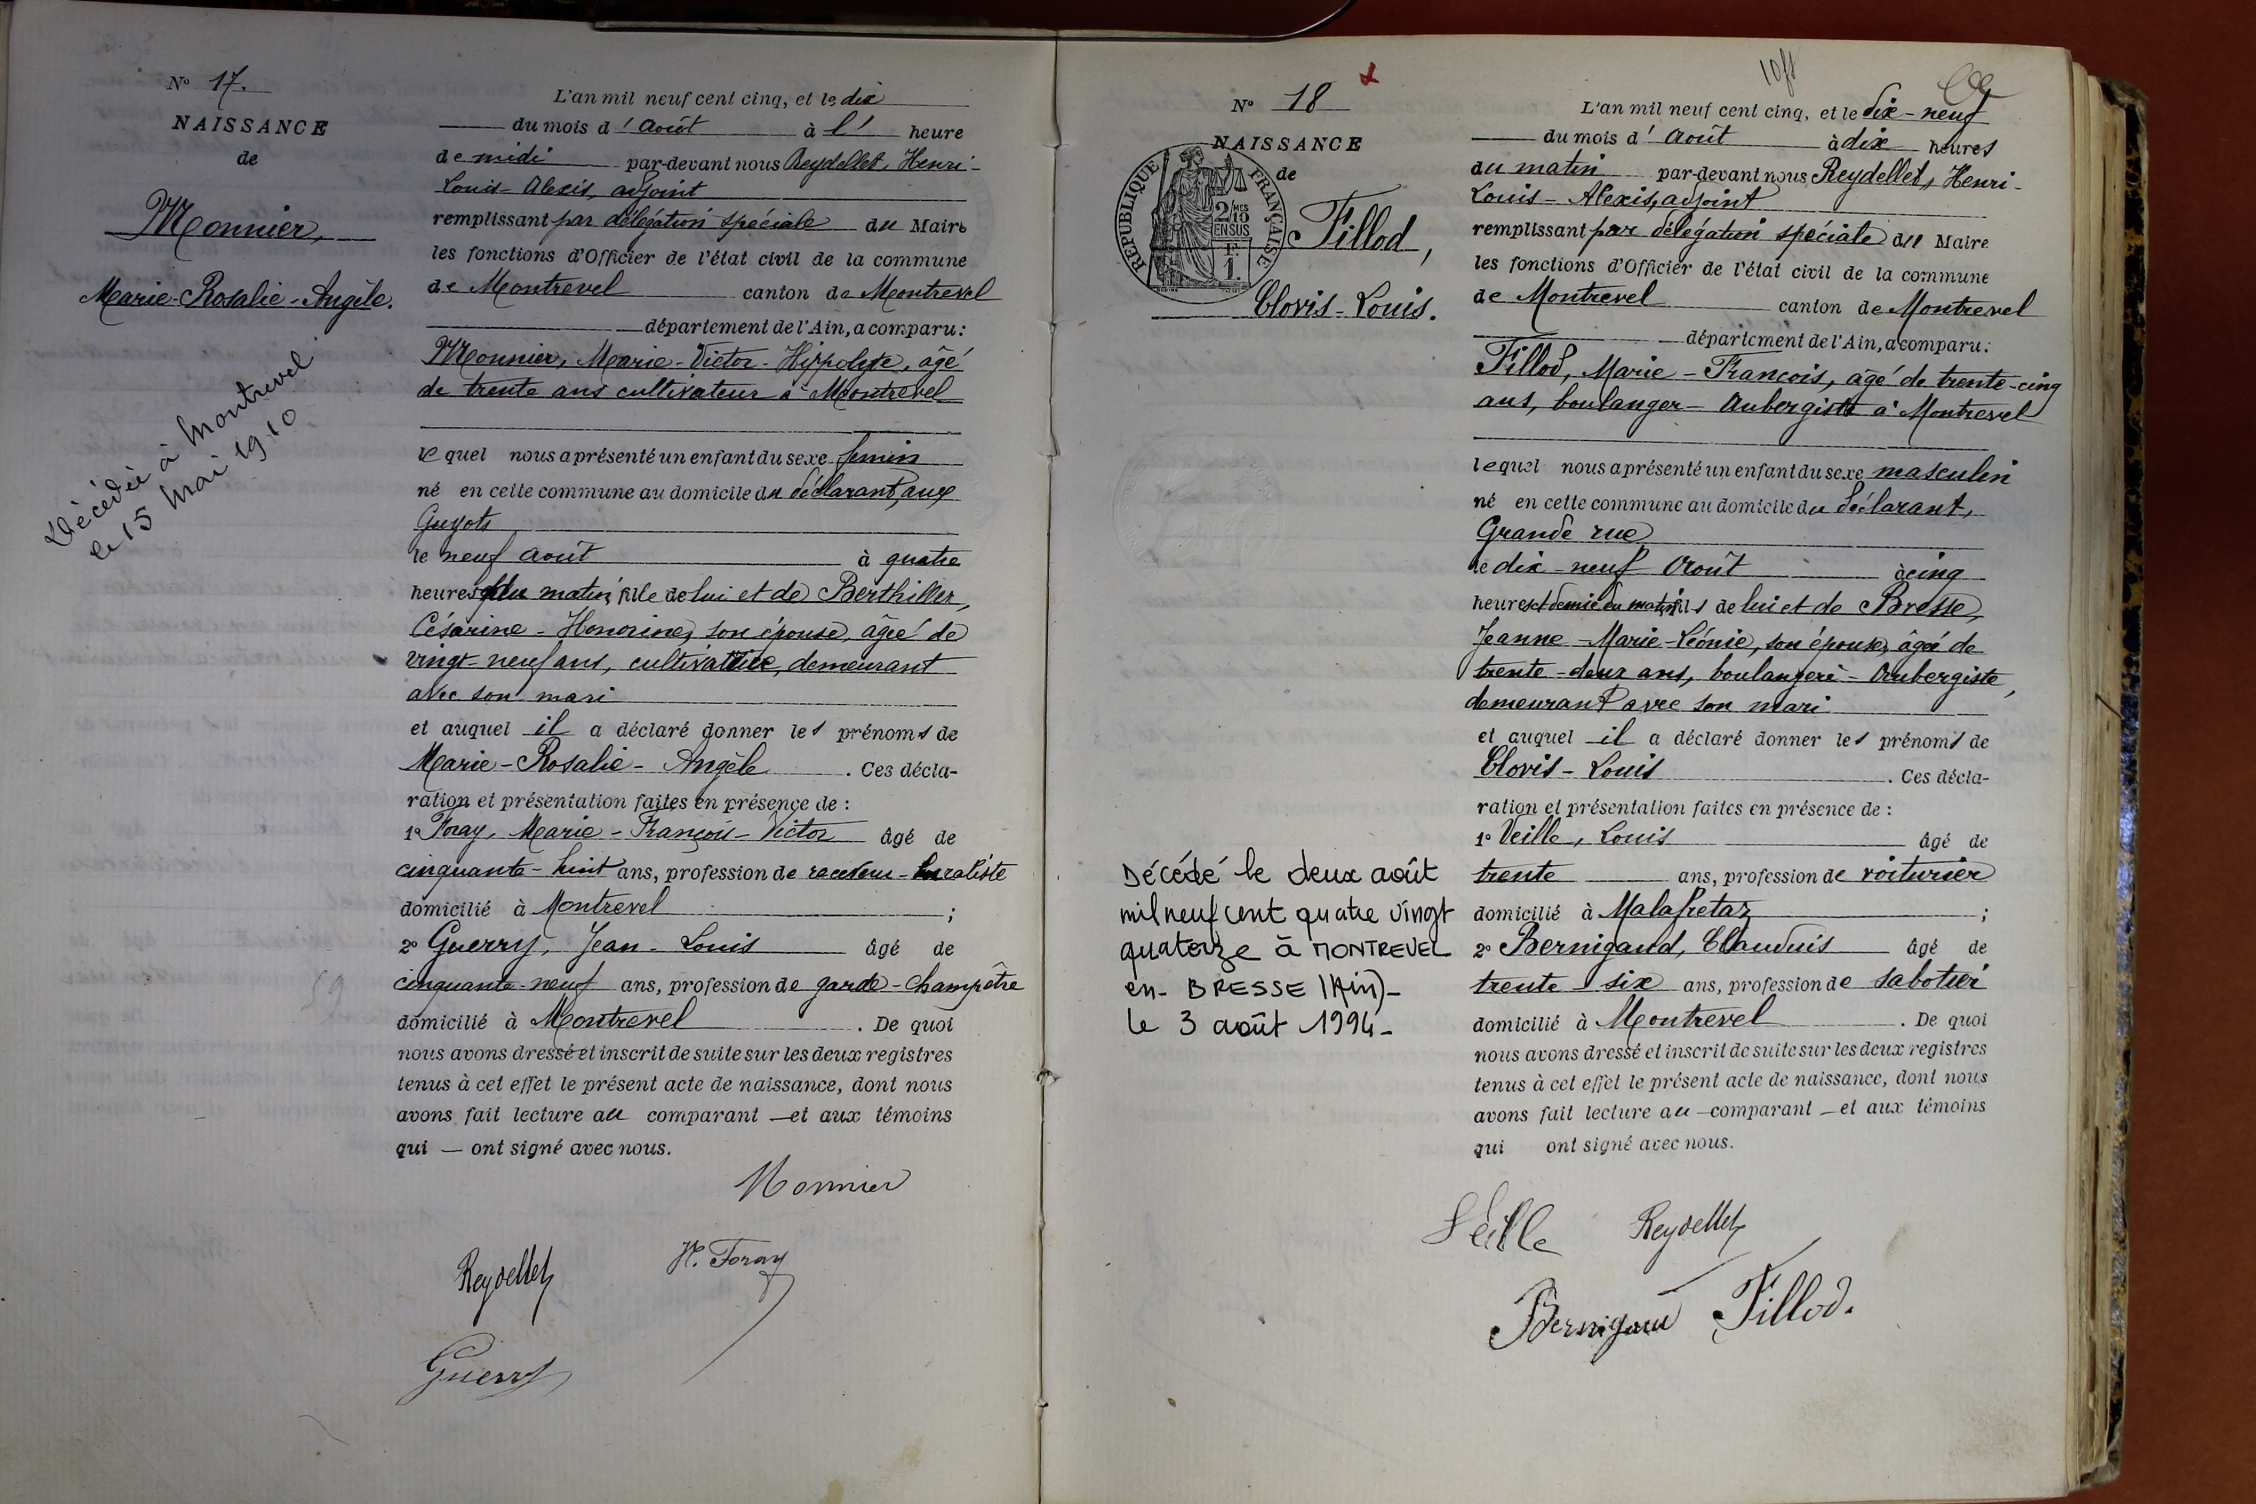 N° 17.
NAISSANCE
de
Monnier,
Marie-Rosalie-Angèle.
Décédée à Montrevel
le 15 Mai 1910
L'an mil neuf cent cinq, et le dix
du mois d'Août à l' heure
de midi par-devant nous Reydellet, Henri-
Louis-Alexis, adjoint
remplissant par délégation spéciale du Maire
les fonctions d'Officier de l'état civil de la commune
de Montrevel canton de Montrevel
département de l'Ain, a comparu:
Monnier, Marie-Victor-Hippolyte, âgé
de trente ans cultivateur à Montrevel
lequel nous a présenté un enfant du sexe féminin
né en cette commune au domicile du déclarant, aux
Guyots
le neuf août à quatre
heures du matin, fille de lui et de Berthillier,
Césarine-Honorine, son épouse, âgée de
vingt-neuf ans, cultivatrice, demeurant
avec son mari
et auquel il a déclaré donner les prénoms de
Marie-Rosalie-Angèle. Ces décla-
ration et présentation faites en présence de :
1° Foray, Marie-François-Victor âgé de
cinquante-huit ans, profession de receveur-buraliste
domicilié à Montrevel ;
2° Guerry, Jean-Louis âgé de
cinquante-neuf ans, profession de garde-champêtre
domicilié à Montrevel. De quoi
nous avons dressé et inscrit de suite sur les deux registres
tenus à cet effet le présent acte de naissance, dont nous
avons fait lecture au comparant — et aux témoins
qui — ont signé avec nous.
Monnier
Reydellet
H. Foray
Guerry
N° 18
NAISSANCE
de
RÉPUBLIQUE FRANÇAISE
2/MES
10
EN SUS
F.
1.
Fillod,
Clovis-Louis.
Décédé le deux août
mil neuf cent quatre vingt
quatorze à MONTREVEL
en- BRESSE (Ain)-
le 3 août 1994-
L'an mil neuf cent cinq, et le dix-neuf
du mois d'Août à dix heures
du matin par-devant nous Reydellet, Henri-
Louis-Alexis, adjoint
remplissant par délégation spéciale du Maire
les fonctions d'Officier de l'état civil de la commune
de Montrevel canton de Montrevel
département de l'Ain, a comparu:
Fillod, Marie-François, âgé de trente-cinq
ans, boulanger-Aubergiste à Montrevel
lequel nous a présenté un enfant du sexe masculin
né en cette commune au domicile du déclarant,
Grande rue
le dix-neuf Août à cinq
heures et demie du matin, fils de lui et de Bresse,
Jeanne-Marie-Léonie, son épouse, âgée de
trente-deux ans, boulangère-Aubergiste,
demeurant avec son mari
et auquel il a déclaré donner les prénoms de
Clovis-Louis. Ces décla-
ration et présentation faites en présence de :
1° Veille, Louis âgé de
trente ans, profession de voiturier
domicilié à Malafretaz ;
2° Bernigaud, Claudius âgé de
trente-six ans, profession de sabotier
domicilié à Montrevel. De quoi
nous avons dressé et inscrit de suite sur les deux registres
tenus à cet effet le présent acte de naissance, dont nous
avons fait lecture au — comparant — et aux témoins
qui ont signé avec nous.
Veille
Reydellet
Bernigaud
Fillod.